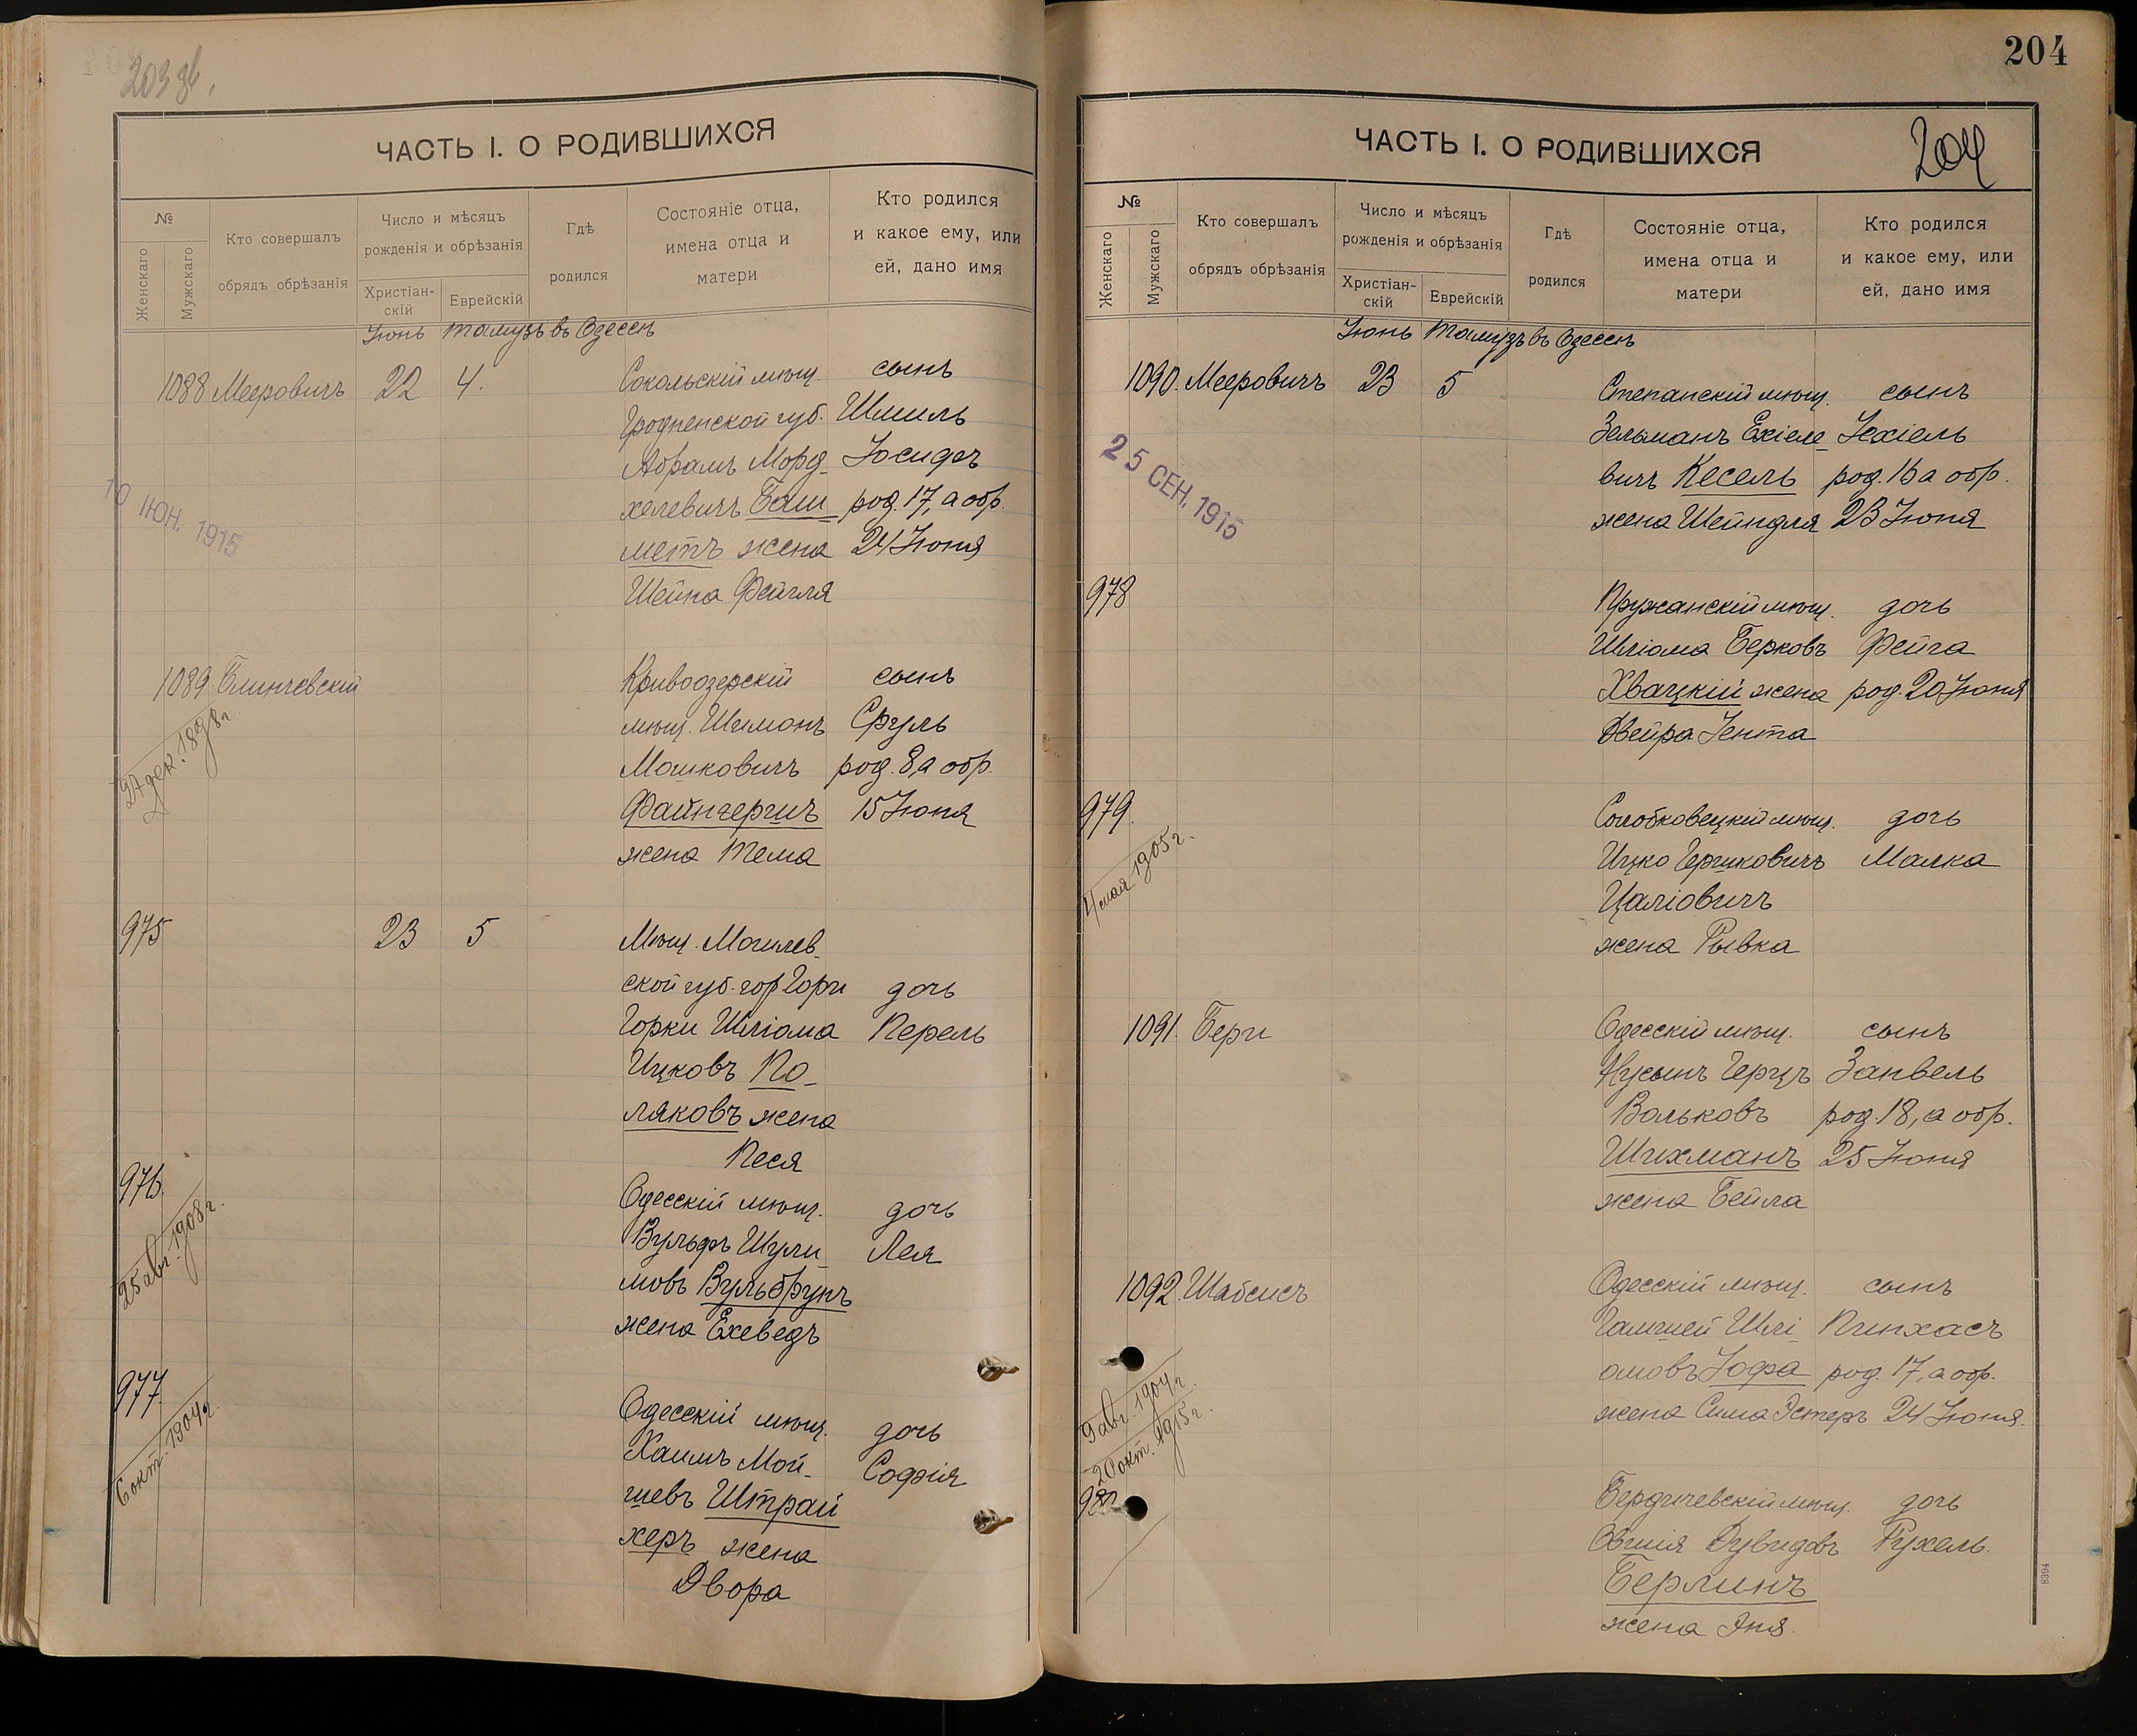 203 об.
ЧАСТЬ I. О РОДИВШИХСЯ
№
Женскаго
Мужскаго
Кто совершалъ
обрядъ обрѣзанія
Число и мѣсяцъ
рожденія и обрѣзанія
Христіан-
скій
Еврейскій
Гдѣ
родился
Состояніе отца,
имена отца и
матери
Кто родился
и какое ему, или
ей, дано имя
Іюнь Тамузъ въ Одессѣ
1088 Мееровичъ 22 4. Сокольскій мѣщ. сынъ
Гродненской губ. Шмиль
Абрамъ Морд- Іосифъ
хелевичъ Баш род. 17, а обр.
метъ жена 24 Іюня
Шейна Фейгля
10 ІЮН. 1915
1089 Блинчевскій Кривоозерскій сынъ
мѣщ. Шимонъ Сруль
Мошковичъ род. 8, а обр.
Файнгершъ 15 Іюня
жена Тема
27 дек. 1898 г.
975 23 5 Мѣщ. Могилев-
ской губ. гор Горы дочь
Горки Шліома Перель
Ицковъ По-
ляковъ жена
Песя
976. Одесскій мѣщ. дочь
Вульфъ Шули- Лея
мовъ Вульбрунъ
жена Ехеведъ
25 авг. 1908 г.
977. Одесскій мѣщ. дочь
Хаимъ Мой- Софія
шевъ Штрай
херъ жена
Двора
6 окт. 1904 г.
204
ЧАСТЬ I. О РОДИВШИХСЯ
204
№
Женскаго
Мужскаго
Кто совершалъ
обрядъ обрѣзанія
Число и мѣсяцъ
рожденія и обрѣзанія
Христіан-
скій
Еврейскій
Гдѣ
родился
Состояніе отца,
имена отца и
матери
Кто родился
и какое ему, или
ей, дано имя
Іюнь Тамузъ въ Одессѣ
1090. Мееровичъ 23 5 Степанскій мѣщ. сынъ
Зельманъ Ехіеле- Іехіель
вичъ Кесель род. 16 а обр.
жена Шейндля 23 Іюня
25 СЕН. 1915
978 Пружанскій мѣщ. дочь
Шліома Берковъ Фейга
Хвацкій жена род. 20 Іюня
Двейра Іента
979. Солобковецкій мѣщ. дочь
Ицко Гершковичъ Малка
Цаліовичъ
жена Рывка
4 мая 1905 г.
1091. Берш Одесскій мѣщ. сынъ
Нусынъ Герцъ Занвель
Вольковъ род. 18, а обр.
Шихманъ 25 Іюня
жена Бейла
1092. Шабсисъ Одесскій мѣщ. сынъ
Гамшей Шлі- Пинхасъ
омовъ Іофа род. 17, а обр.
жена Сима Эстеръ 24 Іюня.
9 авг. 1904 г.
20 окт. 1915 г.
980 Бердичевскій мѣщ. дочь
Овшія Дувидовъ Рухель.
Берлинъ
жена Эня.
8394